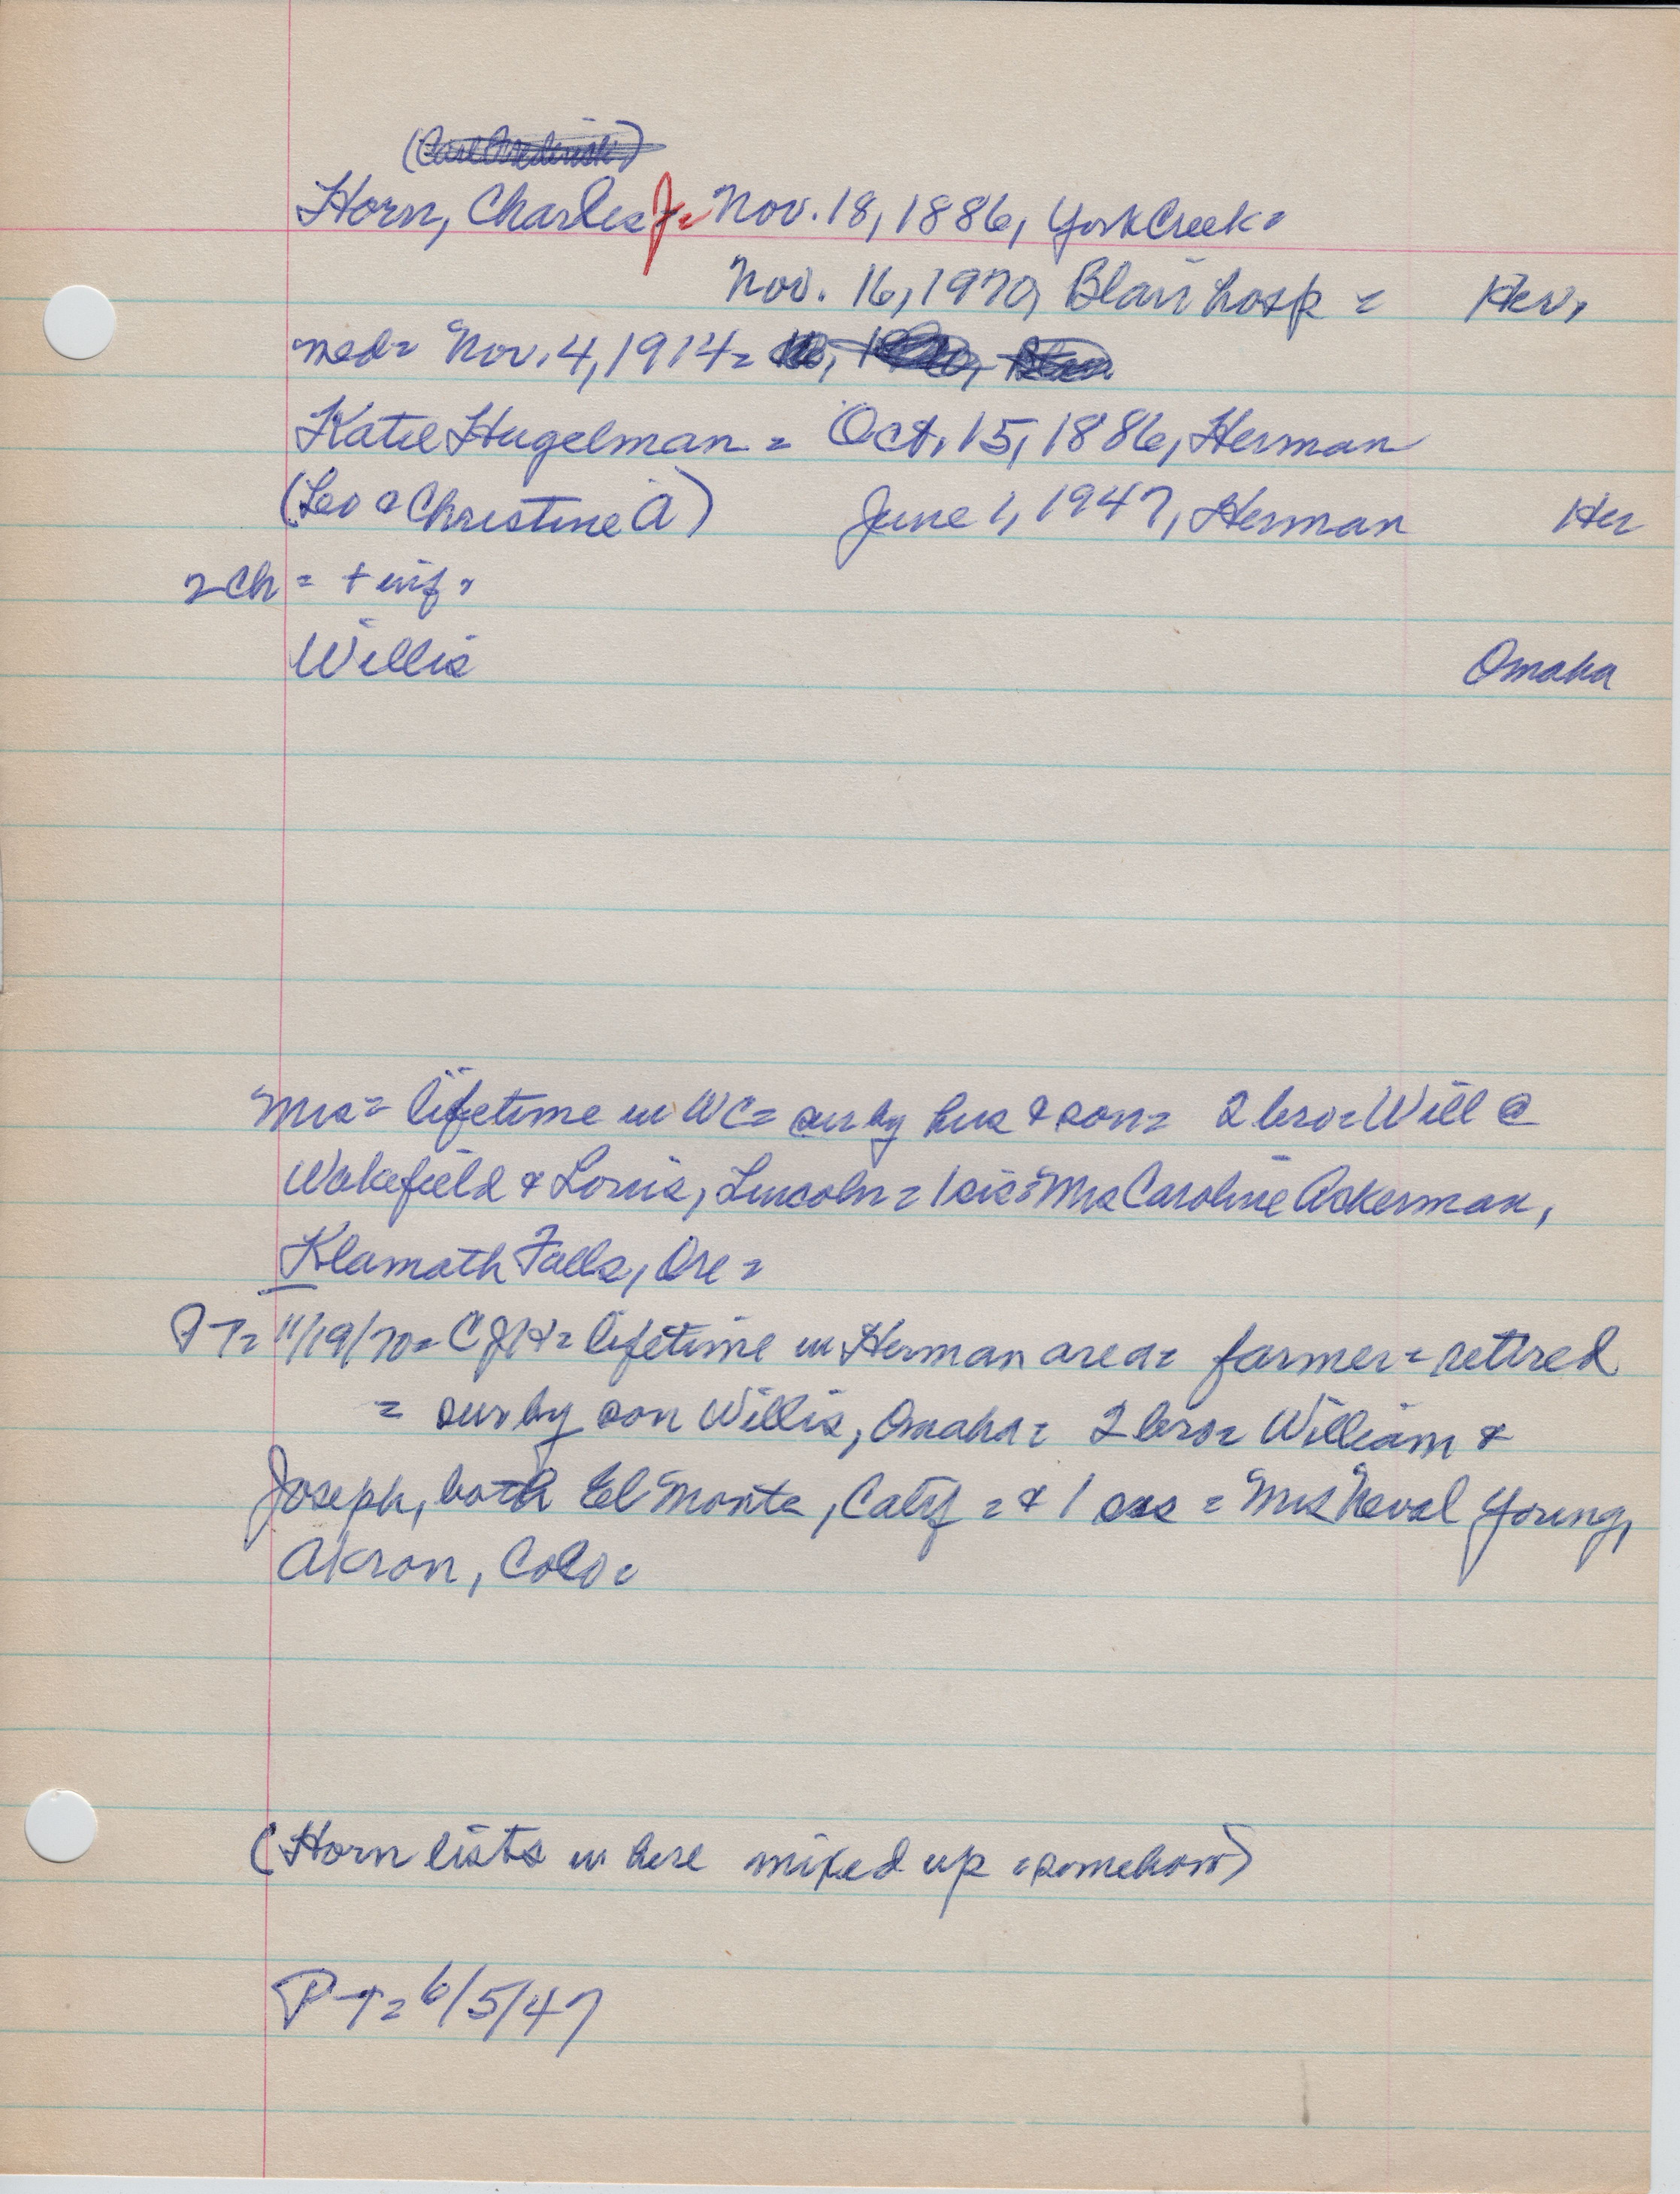 (Carl Frederick)
Horn, Charles J = Nov. 18, 1886, York Creek =
Nov. 16, 1970, Blair hosp = Her.
med = Nov. 4, 1914 =
Katie Hugelman = Oct. 15, 1886, Herman
(Leo & Christine A) June 1, 1947, Herman Her
2 Ch = + inf.
Willis Omaha
Mrs = lifetime in WC = sur by hus & son = 2 bro = Will @
Wakefield & Louis, Lincoln = 1 sis = Mrs Caroline Ackerman,
Klamath Falls, Ore =
PT = 11/19/70 = CJH = lifetime in Herman area = farmer = retired
= sur by son Willis, Omaha = 2 bro = William &
Joseph, both El Monte, Calif = & 1 sis = Mrs Neval Young,
Akron, Colo =
(Horn lists in here mixed up = somehow)
PT = 6/5/47